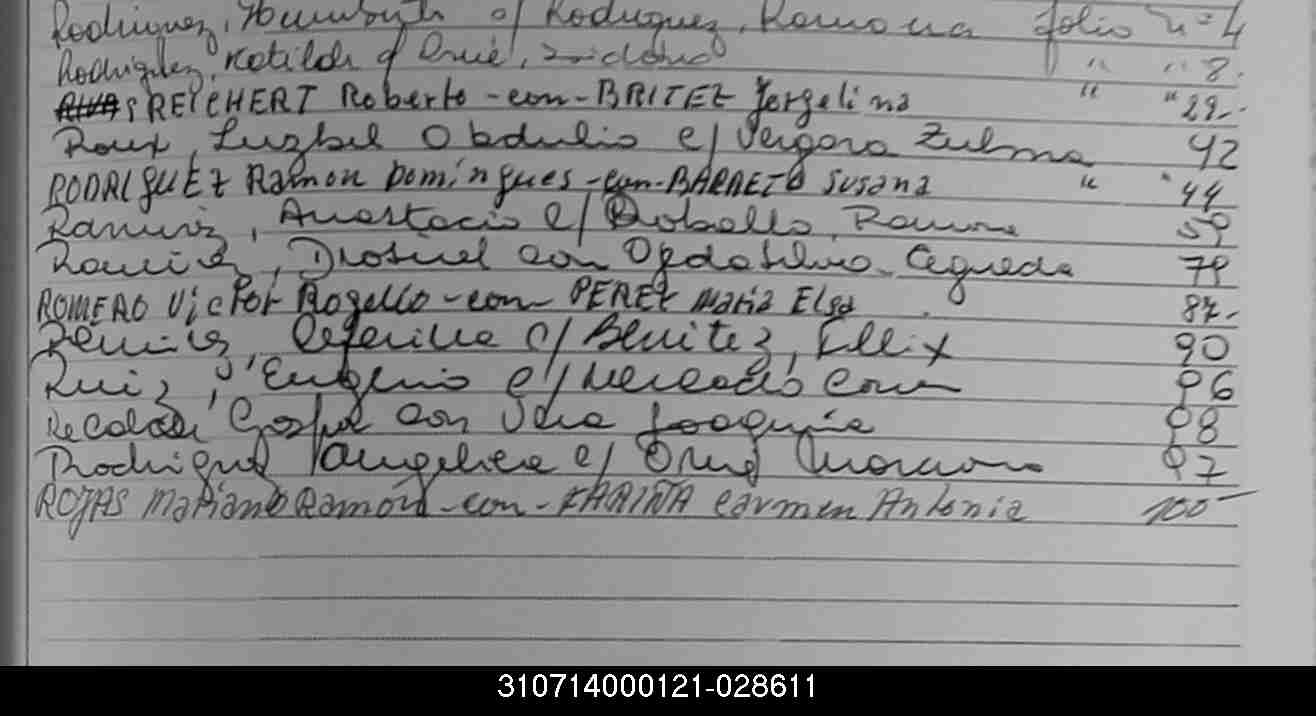 Rodriguez, Humberto c/ Rodriguez, Ramona folio nº 4
Rodriguez, Matilde c/ Orué, " " 8.
REICHERT Roberto -con- BRITEZ Jorgelina " " 29.-
Roux, Luzbel Obdulio c/ Vergara Zulma 42
RODRIGUEZ Ramon Domingues -con- BARRETO Susana " " 44
Ramirez, Anastacio c/ Roballo, Ramona 59
Ramirez, con Agueda 79
ROMERO Victor Rogelio -con- PEREZ Maria Elsa 87.-
Ramirez, Ceferina c/ Benitez, Felix 90
Ruiz, Eugenio c/ Mercedes 96
Recalde Gaspar con Vera Joaquina 98
Rodriguez Angelica c/ Orué Mariano 97
ROJAS Mariano Ramón -con- FARIÑA Carmen Antonia 100-
310714000121-028611